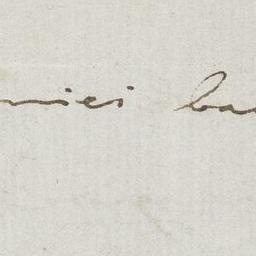 miei ba